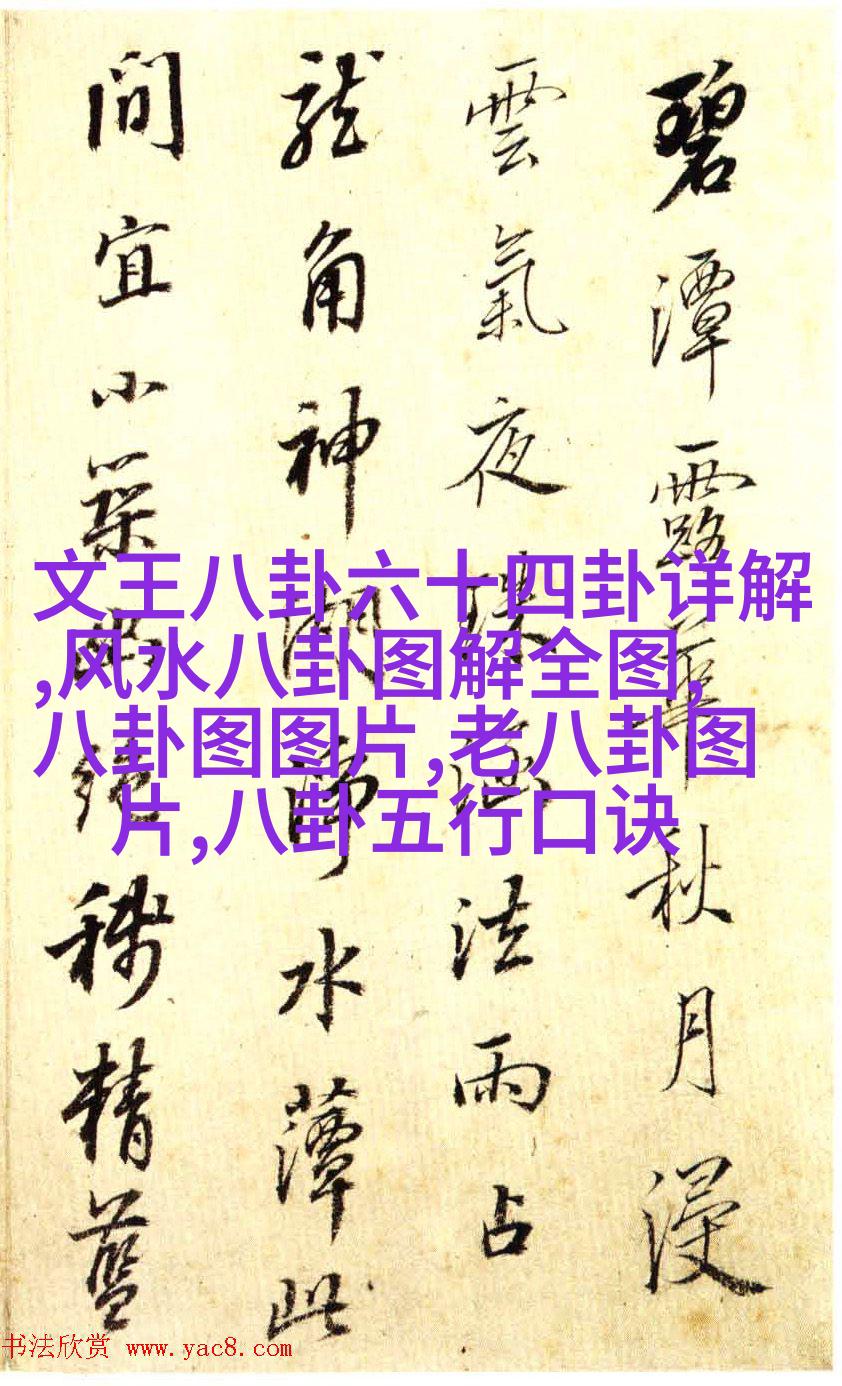 碧潭露華秋月浸
雲氣夜法雨占
龍角神湖水藫此
間宜小築絕稱精藍
文王八卦六十四卦详解
,风水八卦图解全图,
八卦图图片,老八卦图
片,八卦五行口诀
书法欣赏 www.yac8.com